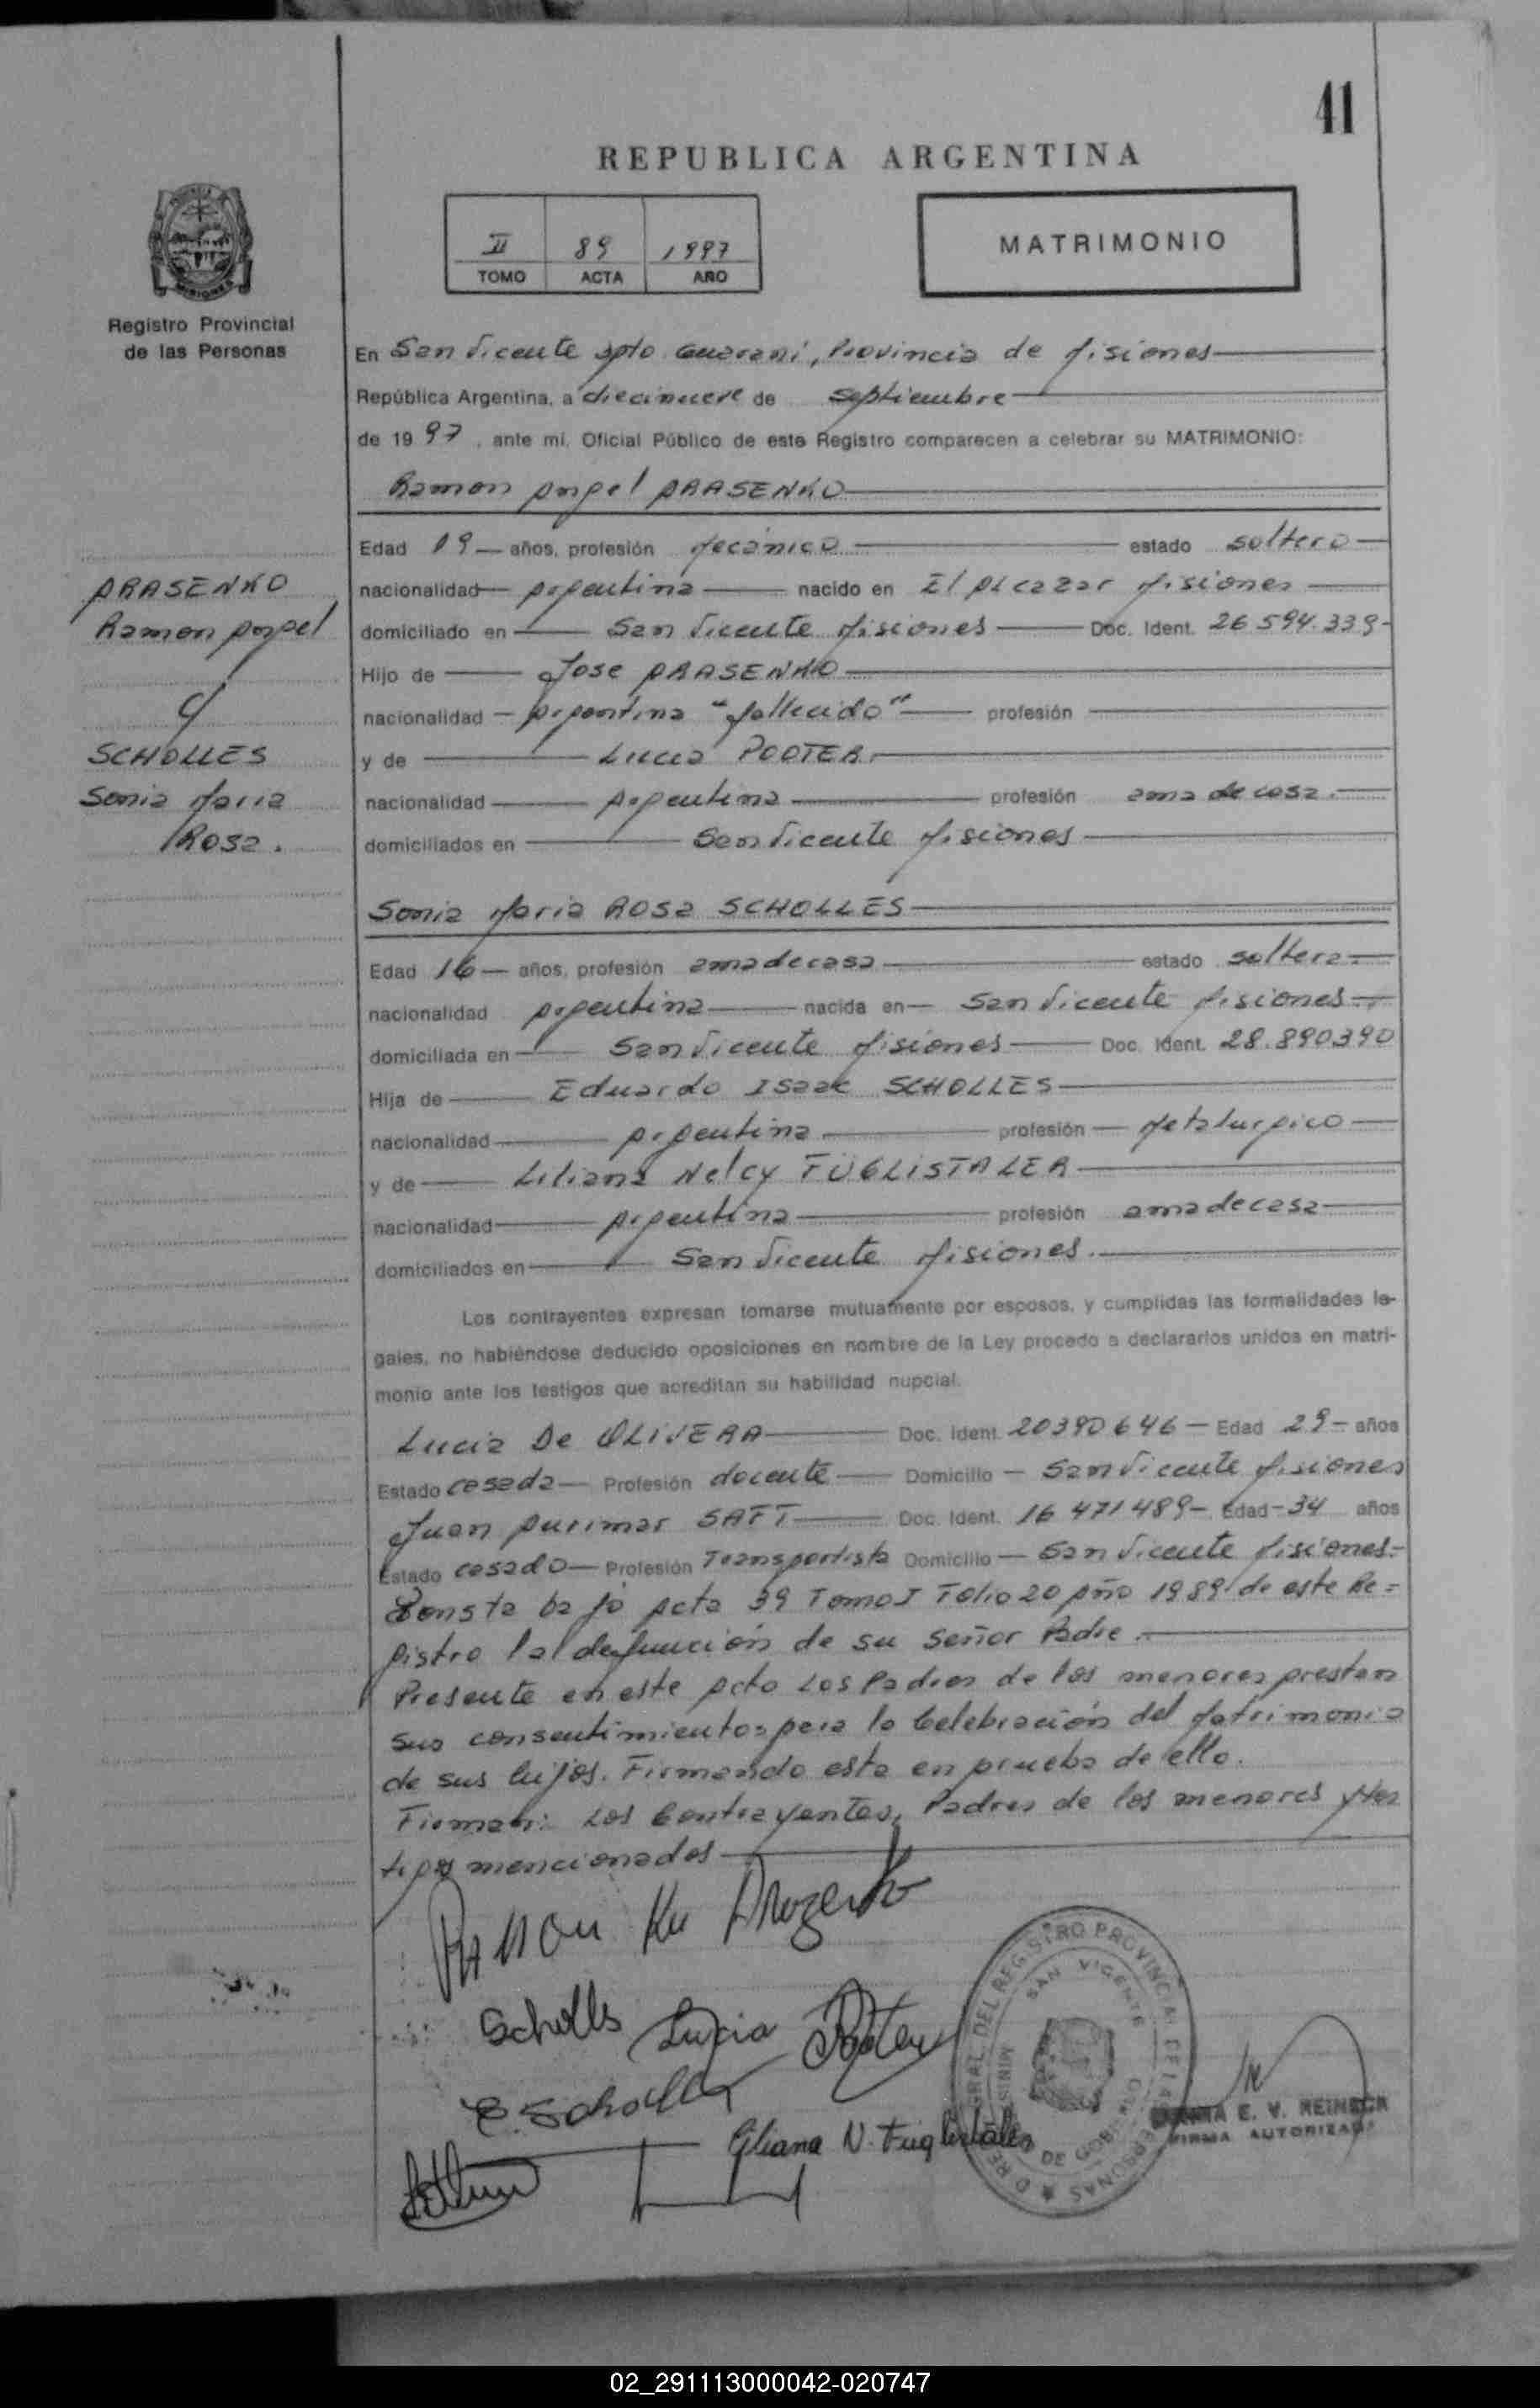 41
REPUBLICA ARGENTINA
II 89 1997
TOMO ACTA AÑO
MATRIMONIO
Registro Provincial
de las Personas
En San Vicente Dpto Guarani, Provincia de Misiones
República Argentina, a diecinueve de septiembre
de 1997, ante mi, Oficial Público de este Registro comparecen a celebrar su MATRIMONIO:
Ramon Angel ARASENKO
Edad 19 años, profesión Mecánico estado soltero
ARASENKO
nacionalidad Argentina nacido en El Alcazar Misiones
Ramon Angel
domiciliado en San Vicente Misiones Doc. Ident. 26.594.339
Hijo de Jose ARASENKO
nacionalidad Argentina "fallecido" profesión
SCHOLLES
y de Lucia POOTER
Sonia Maria
nacionalidad Argentina profesión ama de casa.
Rosa.
domiciliados en San Vicente Misiones
Sonia Maria ROSA SCHOLLES
Edad 16 años, profesión ama de casa estado soltera.
nacionalidad Argentina nacida en San Vicente Misiones
domiciliada en San Vicente Misiones Doc. Ident. 28.890390
Hija de Eduardo Isaac SCHOLLES
nacionalidad Argentina profesión Metalurgico
y de Liliana Nelcy FÜGLISTALER
nacionalidad Argentina profesión ama de casa
domiciliados en San Vicente Misiones.
Los contrayentes expresan tomarse mutuamente por esposos, y cumplidas las formalidades le-
gales, no habiéndose deducido oposiciones en nombre de la Ley procedo a declararlos unidos en matri-
monio ante los testigos que acreditan su habilidad nupcial.
Lucia De OLIVERA Doc. Ident. 20390646 Edad 29 años
Estado casada Profesión docente Domicilio San Vicente Misiones
Juan Aurimar SAFT Doc. Ident. 16 471489 Edad 34 años
Estado casado Profesión Transportista Domicilio San Vicente Misiones.
Consta bajo Acta 39 Tomo I Folio 20 Año 1989 de este Re=
gistro la defunción de su señor Padre.
Presente en este Acto Los Padres de los menores prestan
sus consentimientos para la Celebración del Matrimonio
de sus hijos. Firmando esta en prueba de ello.
Firman: Los Contrayentes, Padres de los menores y tes
tigos mencionados
Scholles Lucia Pooter
E. Scholles
Liliana N. Fuglistaler
REGISTRO PROVINCIAL DE LAS PERSONAS
SAN VICENTE
E. V. REINECK
FIRMA AUTORIZADA
02_291113000042-020747